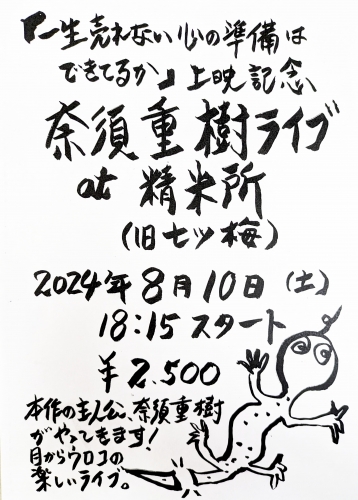 『一生売れない心の準備は
できてるか』上映記念
奈須重樹ライブ
at 精米所
(旧七ツ梅)
2024年8月10日(土)
18:15スタート
¥2.500
本作の主人公、奈須重樹
がやってきます!
目からウロコの
楽しいライブ。